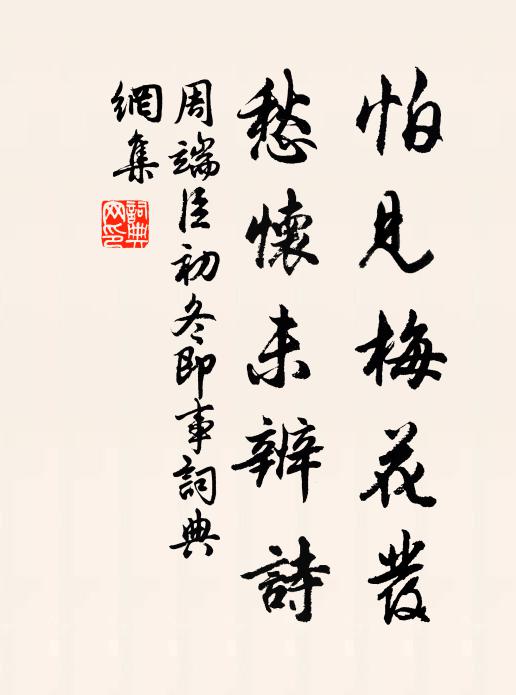 怕見梅花發
愁懷未辨詩
周端臣初冬即事詞典
網集
詞典
网印